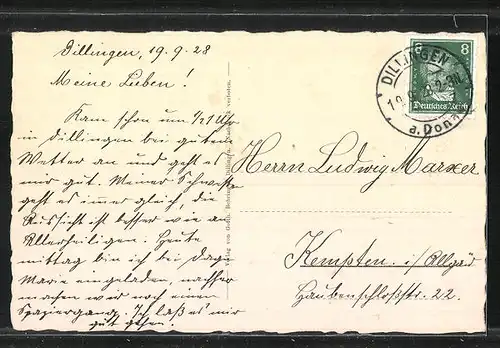 Dillingen, 19.9.28
Meine Lieben!
Kam schon um ½1 Uhr
in Dillingen bei gutem
Wetter an und geht es
mir gut. Meiner Schwester
geht es immer gleich, die
Aussicht ist besser wie an
Allerheiligen. Heute
mittag bin ich bei
Marie eingeladen, nachher
machen wir noch einen
Spaziergang. Ich laß es mir
gut gehen.
Verlag von Gebr.
8 8
Deutsches Reich
DILLINGEN
a. Donau
Herrn Ludwig Marxer
Kempten i/Allgäu
Haubenschloßstr. 22.